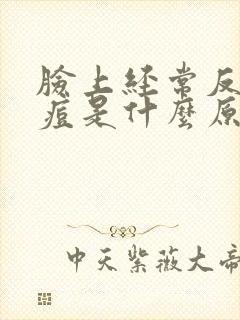 臉上經常反
痘是什麼原
中天紫薇大帝